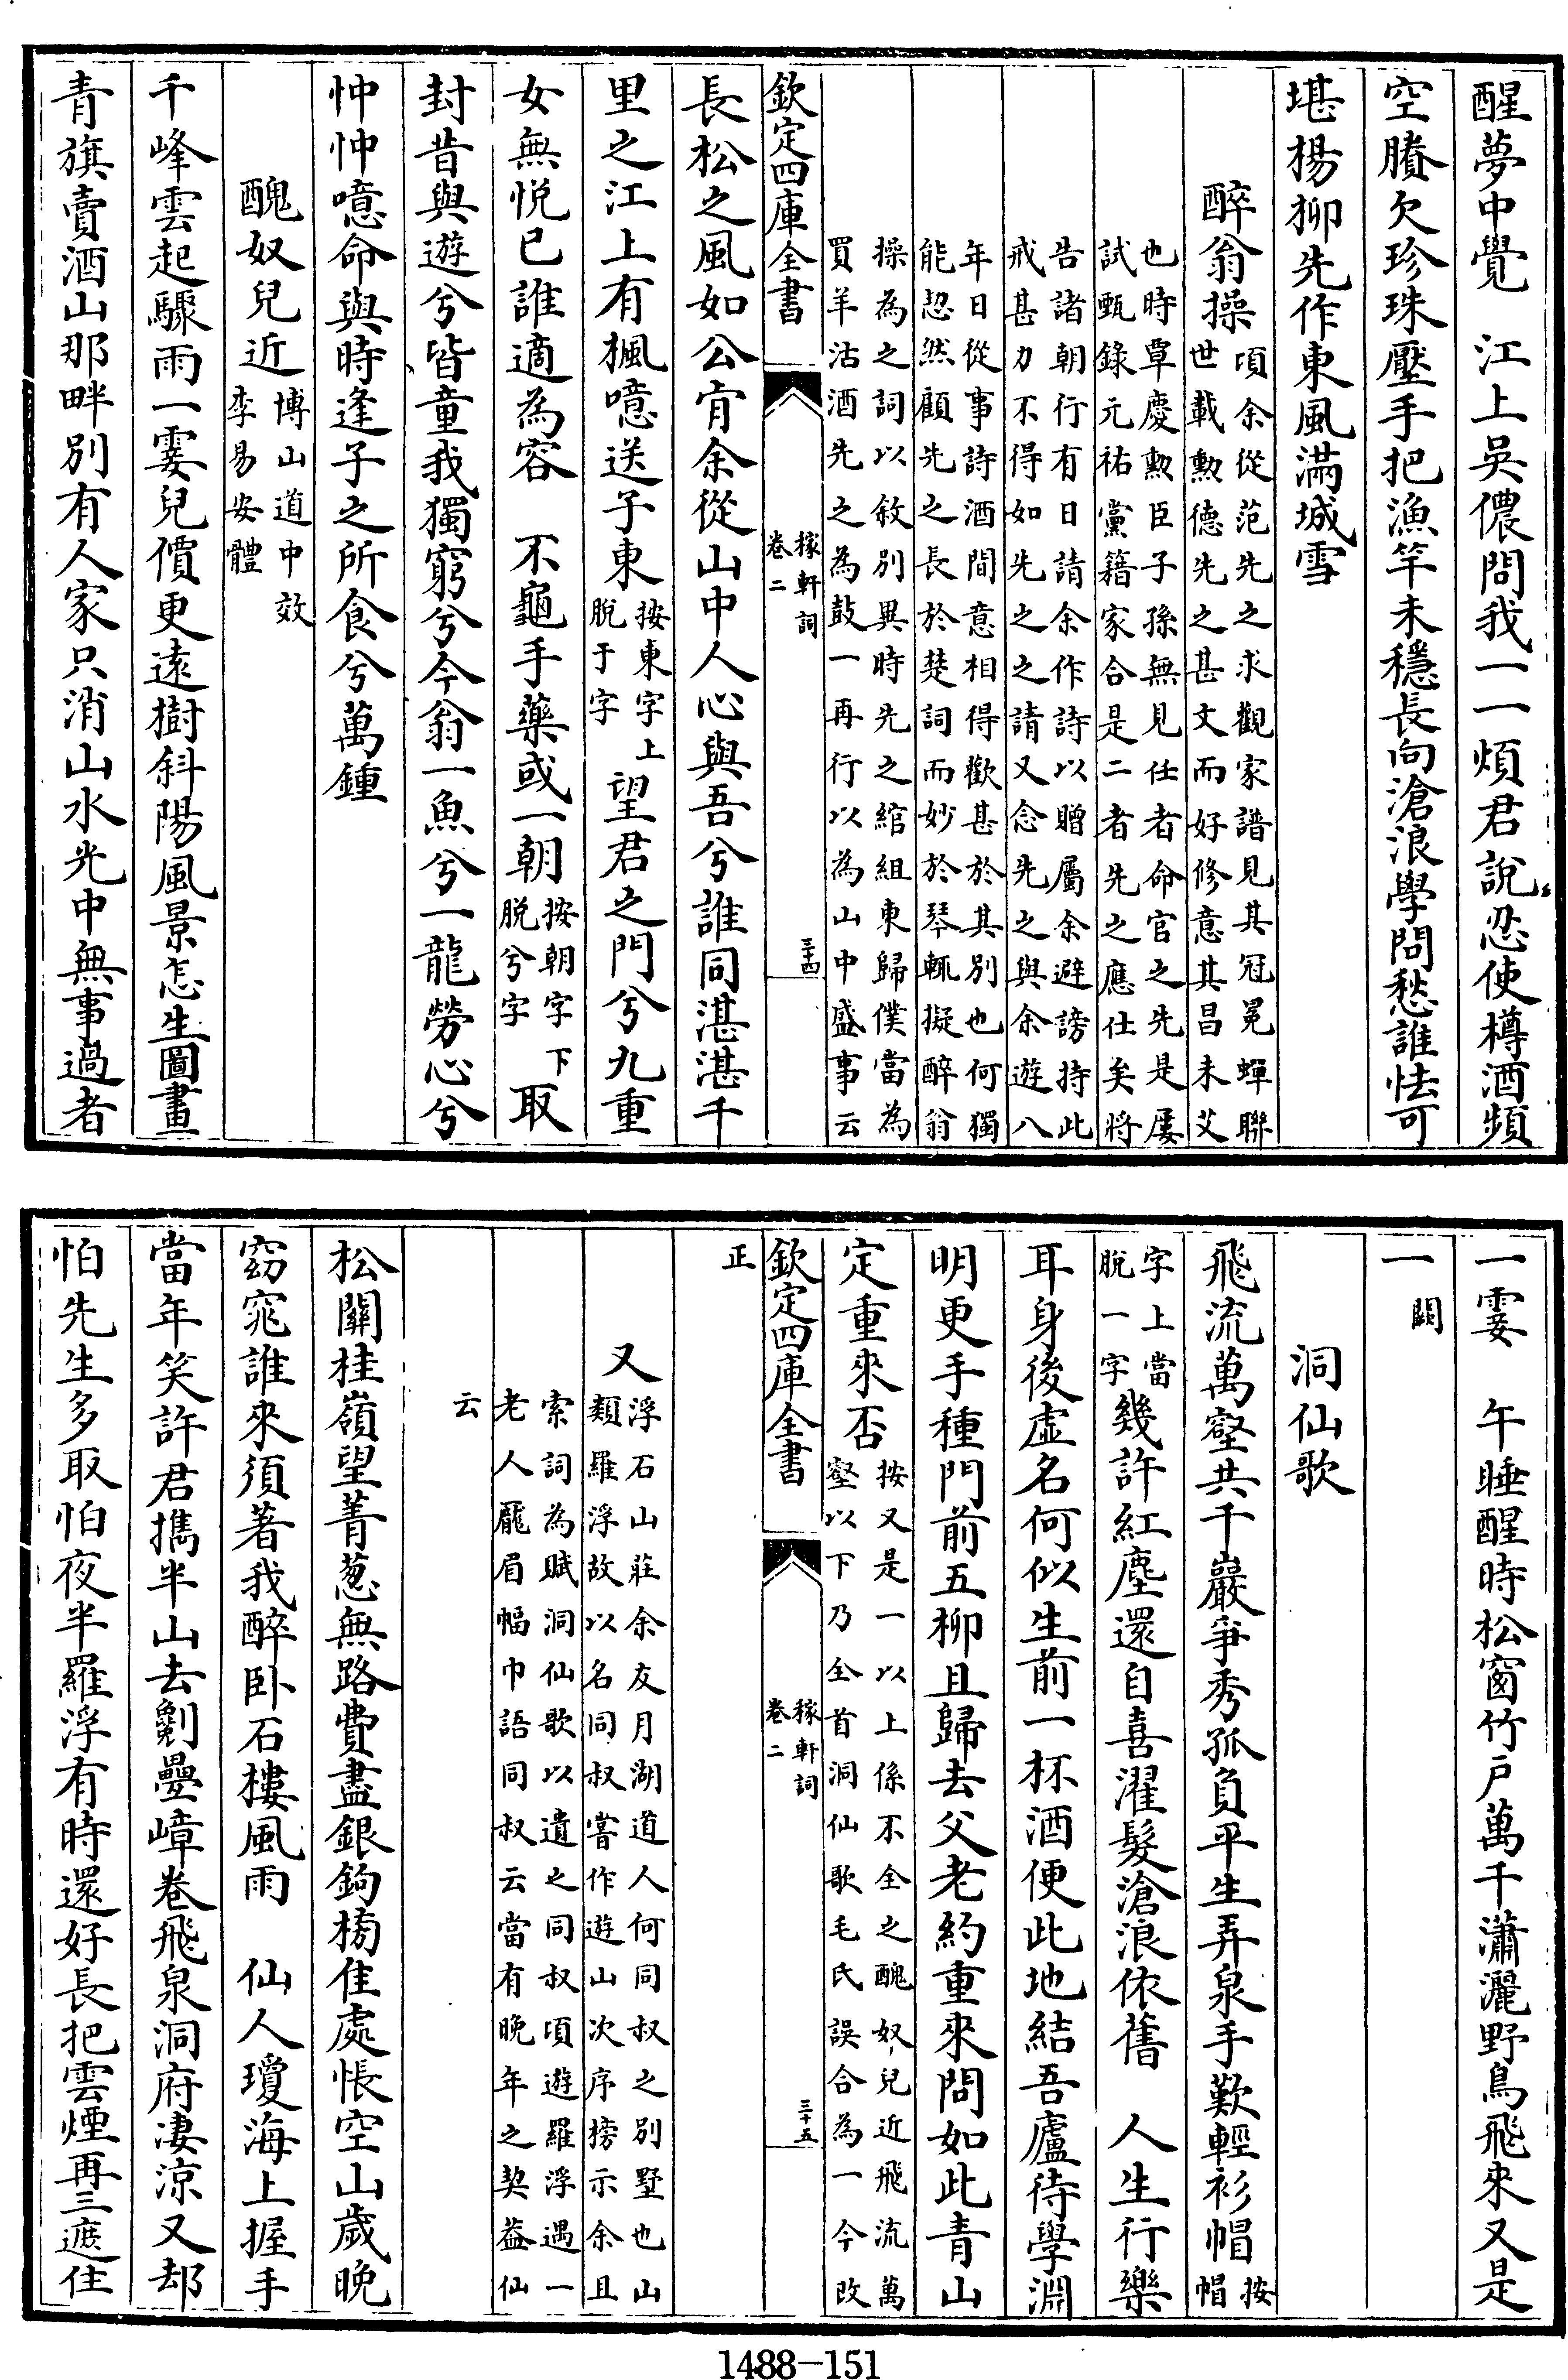 醒夢中覺　江上吳儂問我一一煩君說忍使樽酒頻
空賸欠珍珠壓手把漁竿未穩長向滄浪學問愁誰怯可
堪楊柳先作東風滿城雪
醉翁操
頃余從范先之求觀家譜見其冠冕蟬聯
世載勲德先之甚文而好修意其昌未艾
也時覃慶勲臣子孫無見任者命官之先是屢
試甄錄元祐黨籍家合是二者先之應仕矣將
告諸朝行有日請余作詩以贈屬余避謗持此
戒甚力不得如先之之請又念先之與余遊八
年日從事詩酒間意相得歡甚於其別也何獨
能恝然顧先之長於楚詞而妙於琴輒擬醉翁
操為之詞以敘別異時先之綰組東歸僕當為
買羊沽酒先之為鼓一再行以為山中盛事云
欽定四庫全書
稼軒詞
卷二
三十四
長松之風如公肯余從山中人心與吾兮誰同湛湛千
里之江上有楓噫送子東按東字上脫于字望君之門兮九重
女無悦已誰適為容　不龜手藥或一朝按朝字下脱兮字取
封昔與遊兮皆童我獨窮兮今翁一魚兮一龍勞心兮
忡忡噫命與時逢子之所食兮萬鍾
醜奴兒近博山道中效李易安體
千峰雲起驟雨一霎兒價更遠樹斜陽風景怎生圖畫
青旗賣酒山那畔別有人家只消山水光中無事過者
一霎　午睡醒時松窗竹戶萬千瀟灑野鳥飛來又是
一闕
洞仙歌
飛流萬壑共千巖爭秀孤負平生弄泉手歎輕衫帽按帽
字上當脫一字幾許紅塵還自喜濯髮滄浪依舊　人生行樂
耳身後虛名何似生前一杯酒便此地結吾廬待學淵
明更手種門前五柳且歸去父老約重來問如此青山
定重來否按又是一以上係不全之醜奴兒近飛流萬
壑以下乃全首洞仙歌毛氏誤合為一今改
欽定四庫全書
稼軒詞
卷二
三十五
正
又
浮石山莊余友月湖道人何同叔之別墅也山
類羅浮故以名同叔嘗作遊山次序榜示余且
索詞為賦洞仙歌以遺之同叔頃遊羅浮遇一
老人龎眉幅巾語同叔云當有晚年之契蓋仙
云
松關桂嶺望菁葱無路費盡銀鉤榜佳處悵空山歲晚
窈窕誰來須著我醉卧石樓風雨　仙人瓊海上握手
當年笑許君攜半山去劖壘嶂卷飛泉洞府凄涼又却
怕先生多取怕夜半羅浮有時還好長把雲煙再三遮住
1488—151